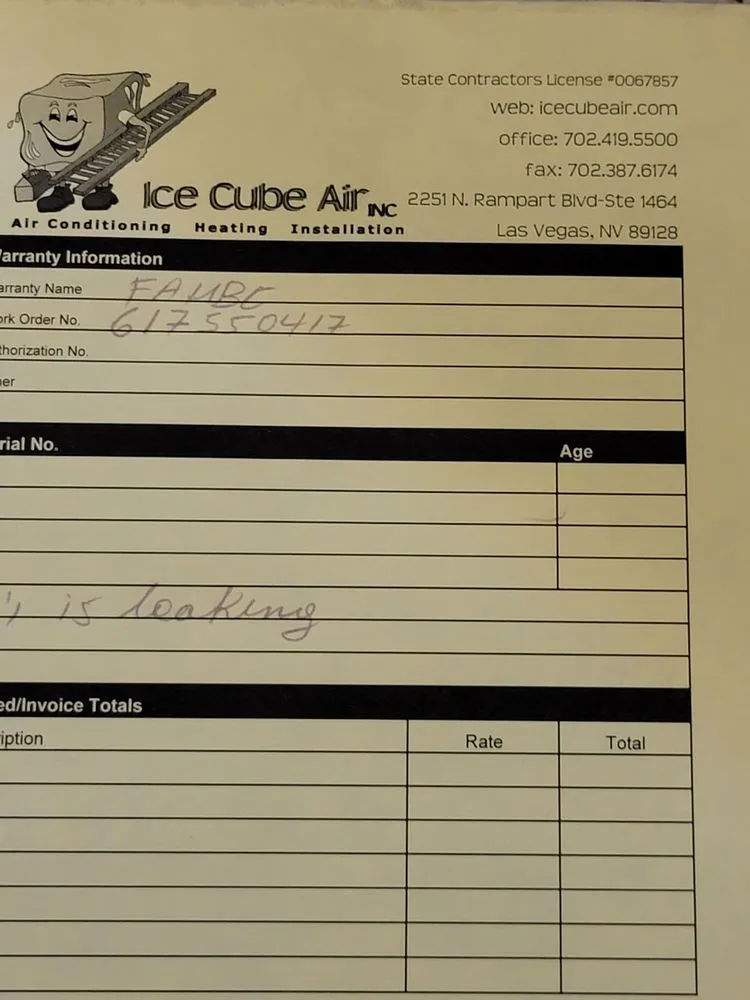 State Contractors License #0067857
web: icecubeair.com
office: 702.419.5500
fax: 702.387.6174
Ice Cube Air INC
2251 N. Rampart Blvd-Ste 1464
Air Conditioning Heating Installation
Las Vegas, NV 89128
arranty Information
arranty Name
ork Order No. 617550417
thorization No.
er
rial No. Age
is leaking
ed/Invoice Totals
iption Rate Total